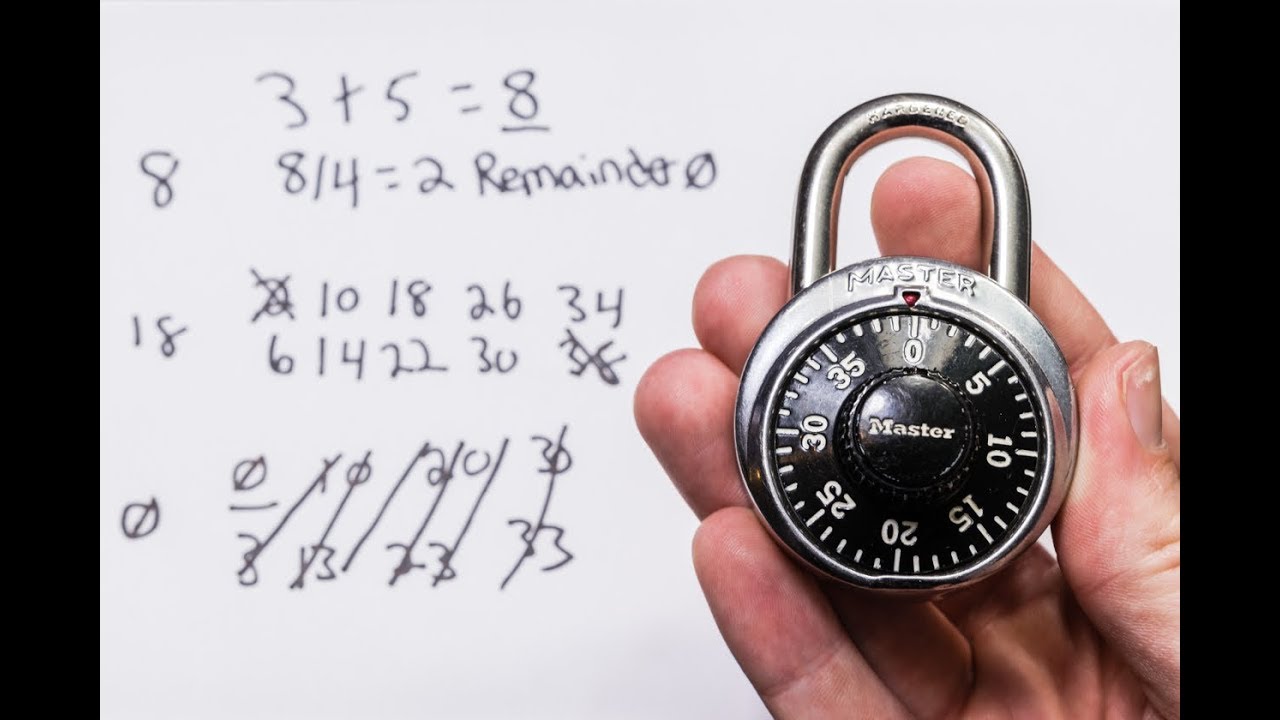 3 + 5 = 8
8 8/4 = 2 Remainder Ø
2 10 18 26 34
18
6 14 22 30 38
Ø 10 20 30
Ø
3 13 23 33
HARDENED
MASTER
0
5
10
15
20
25
30
35
Master